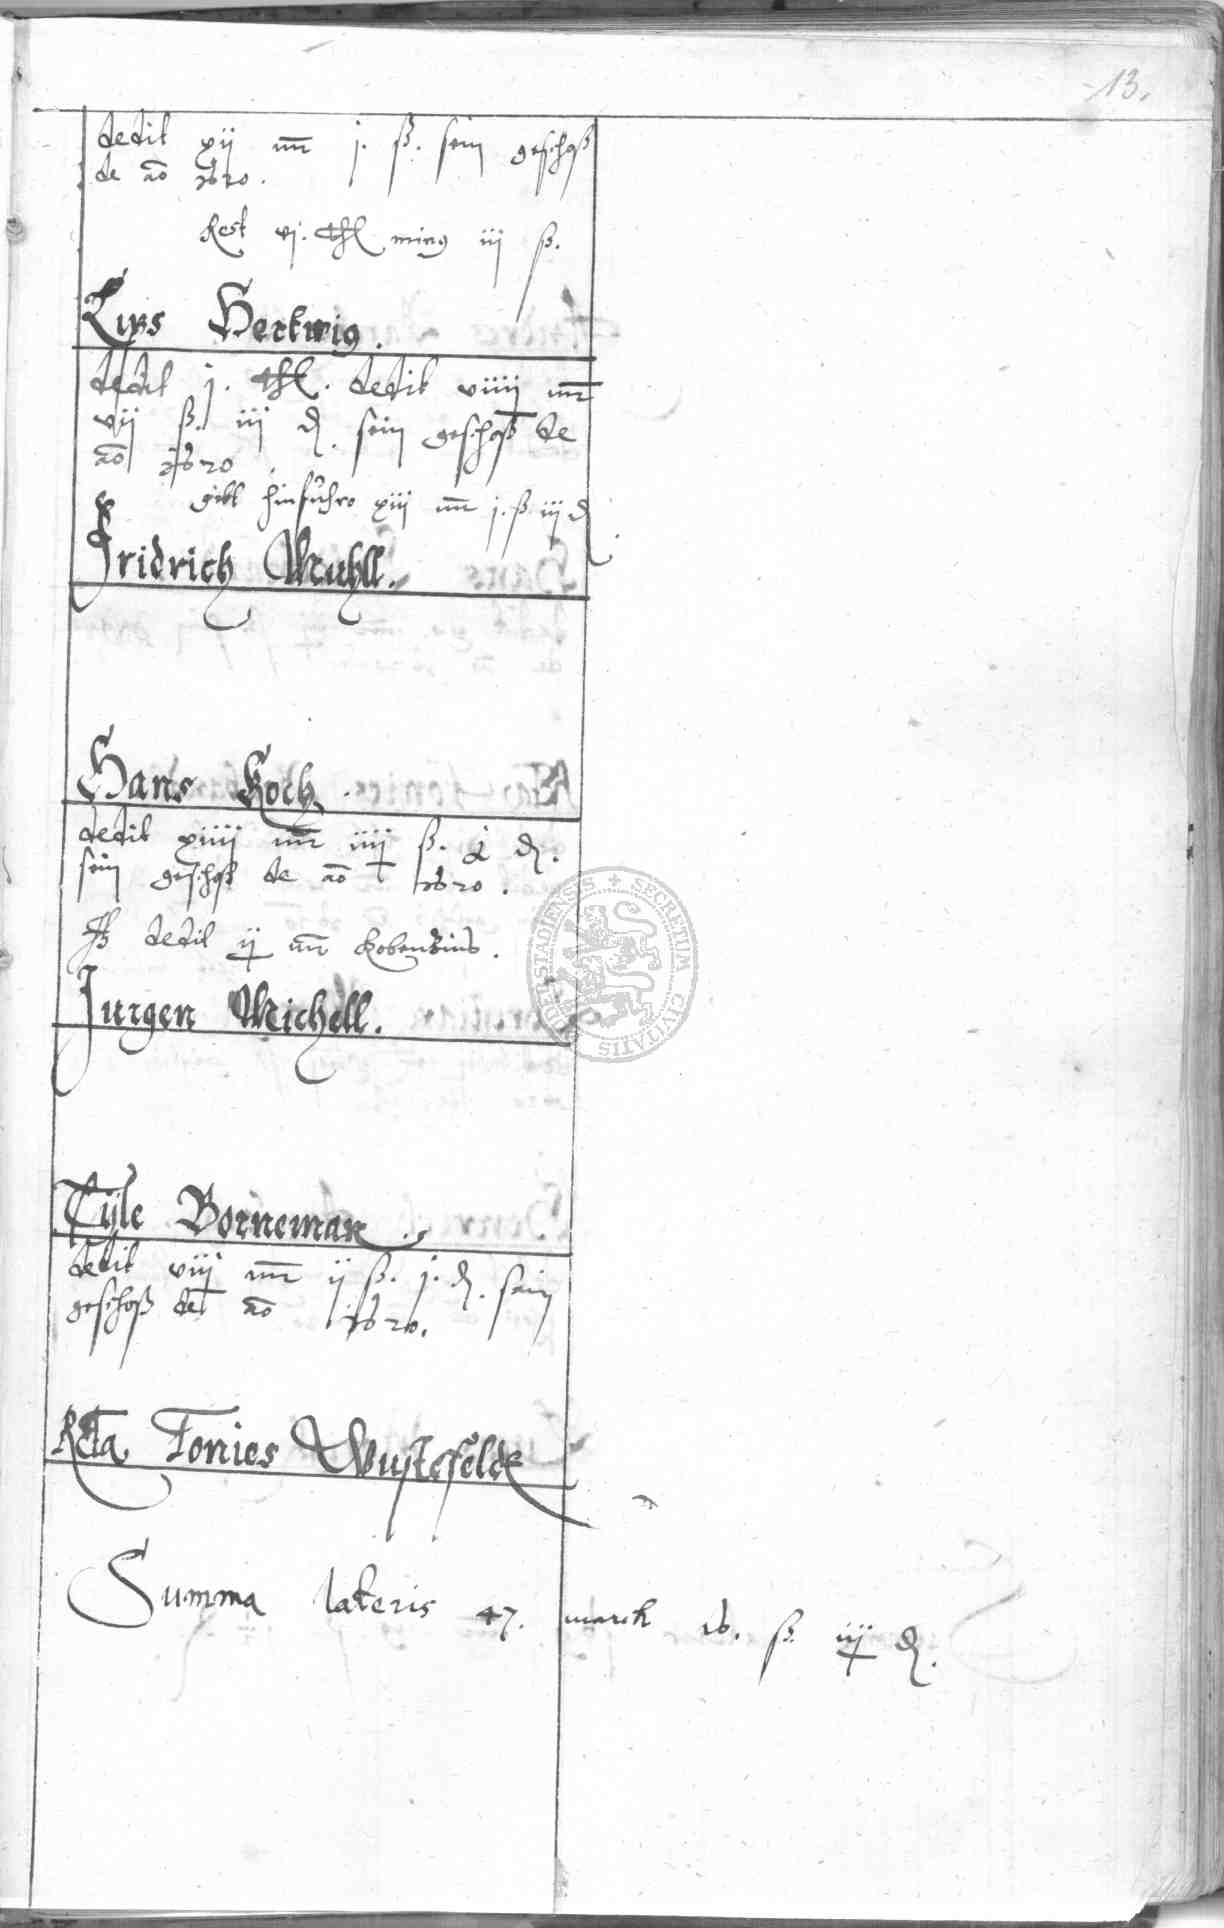 13.
dedit xij mr j. ß. sein geschoß
de ao 1620.
Rest vj. thl minus iij ß.
Lips Hertwig.
dedit j. thl. dedit viiij mr
vij ß. iij d. sein geschoß de
ao 1620
gibt hinfuhro xiij mr j. ß iij d
Fridrich Muhll.
Hans Koch.
dedit xiiij mr iiij ß. d.
sein geschoß de ao 1620.
dedit ij mr
Jurgen Michell.
Tyle Borneman.
dedit viij mr ij ß. j. d. sein
geschoß de ao 1620.
Rcta Tonies Wustefelde
Summa lateris 47. marck 16. ß iij d.
SECRETUM CIVITATIS DUDERSTADIENSIS